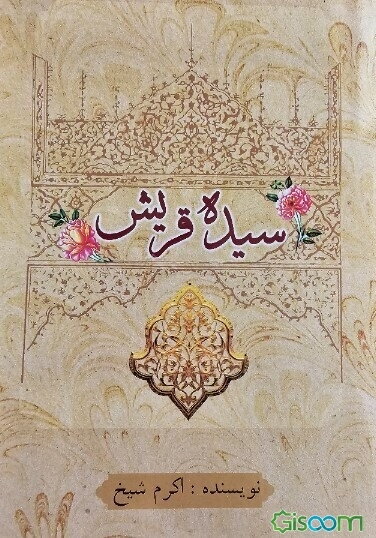 سیده قریش
نویسنده : اکرم شیخ
Gisoom